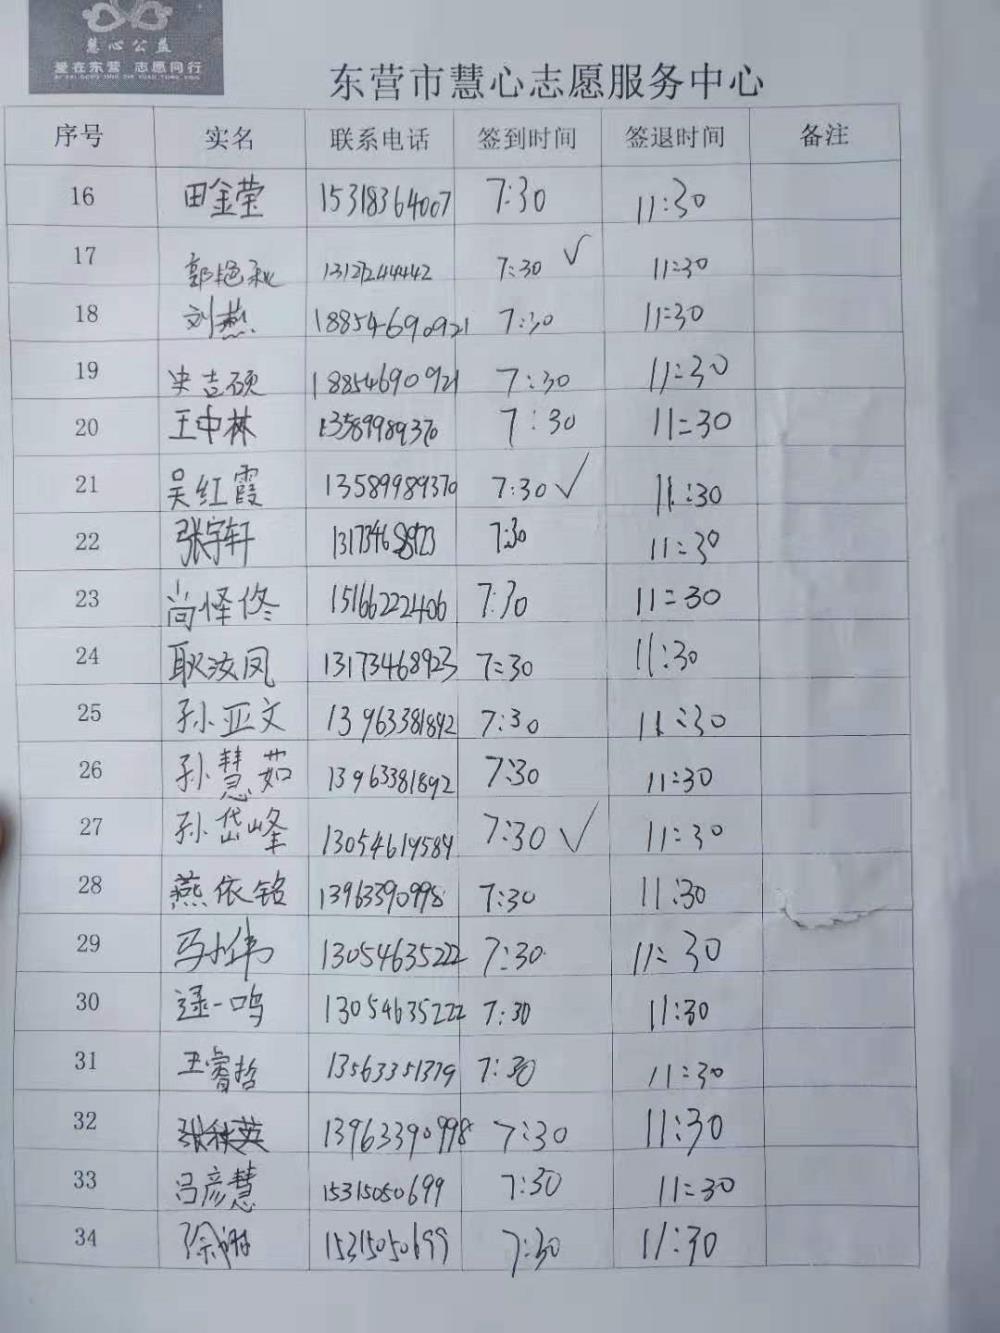 慧心公益
爱在东营 志愿同行
东营市慧心志愿服务中心
序号 实名 联系电话 签到时间 签退时间 备注
16 田金莹 15318364007 7:30 11:30
17 郭艳秋 13127244442 7:30 ✓ 11:30
18 刘燕 18854690921 7:30 11:30
19 史吉硕 18854690921 7:30 11:30
20 王中林 13589989370 7:30 11:30
21 吴红霞 13589989370 7:30 ✓ 11:30
22 张宇轩 13173468923 7:30 11:30
23 尚怿佟 15166222406 7:30 11:30
24 耿汝凤 13173468923 7:30 11:30
25 孙亚文 13963381892 7:30 11:30
26 孙慧茹 13963381892 7:30 11:30
27 孙岱峰 13054619584 7:30 ✓ 11:30
28 燕依铭 13963390998 7:30 11:30
29 马小伟 13054635222 7:30 11:30
30 逯一鸣 13054635222 7:30 11:30
31 王睿哲 13563351379 7:30 11:30
32 张秋英 13963390998 7:30 11:30
33 吕彦慧 15315050699 7:30 11:30
34 15315050699 7:30 11:30